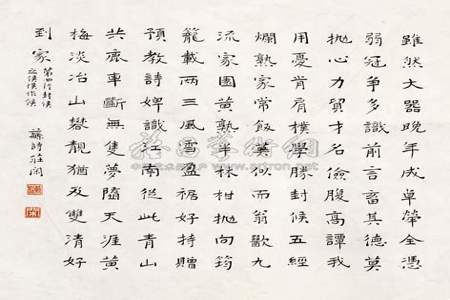 雖然大器晚年成卓犖全憑
弱冠爭多識前言畜其德莫
抛心力貿才名儉腹高譚我
用憂肯肩樸學勝封候五經
爛熟家常飯莫似而翁歠九
流家園黄熟半林柑抛向筠
籠載兩三風雪盈裾好持贈
預教詩婢識江南從此青山
共鹿車斷無隻夢隨天涯黄
梅淡冶山礬靚猶及雙清好
到家
第四行封候
龔詩莊閑